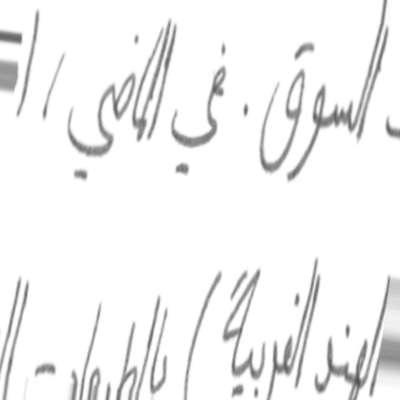 السوق . في الماضي ، ا
الهند الغربية ) بالطبعات